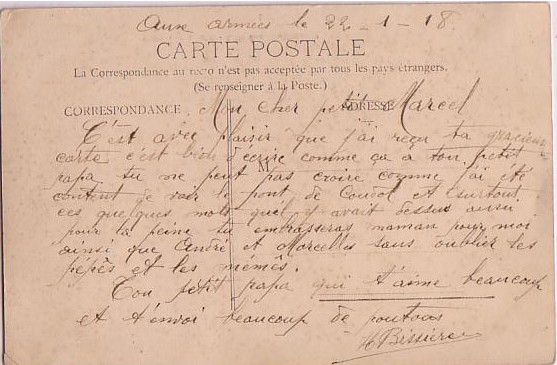 Aux armées le 22-1-18
CARTE POSTALE
La Correspondance au recto n'est pas acceptée par tous les pays étrangers.
(Se renseigner à la Poste.)
CORRESPONDANCE ADRESSE
Mon cher petit Marcel
C'est avec plaisir que j'ai reçu ta gracieuse
carte c'est bien d'écrire comme ça a ton petit
M
papa tu ne peut pas croire comme j'ai été
content de voir le pont de et surtout
ces quelques mots quel y avait dessus aussi
pour la peine tu embrasseras maman pour moi
ainsi que André et Marcelles sans oublier les
pépés et les mémés.
Ton petit papa qui t'aime beaucoup
et t'envoi beaucoup de poutous
Bissière